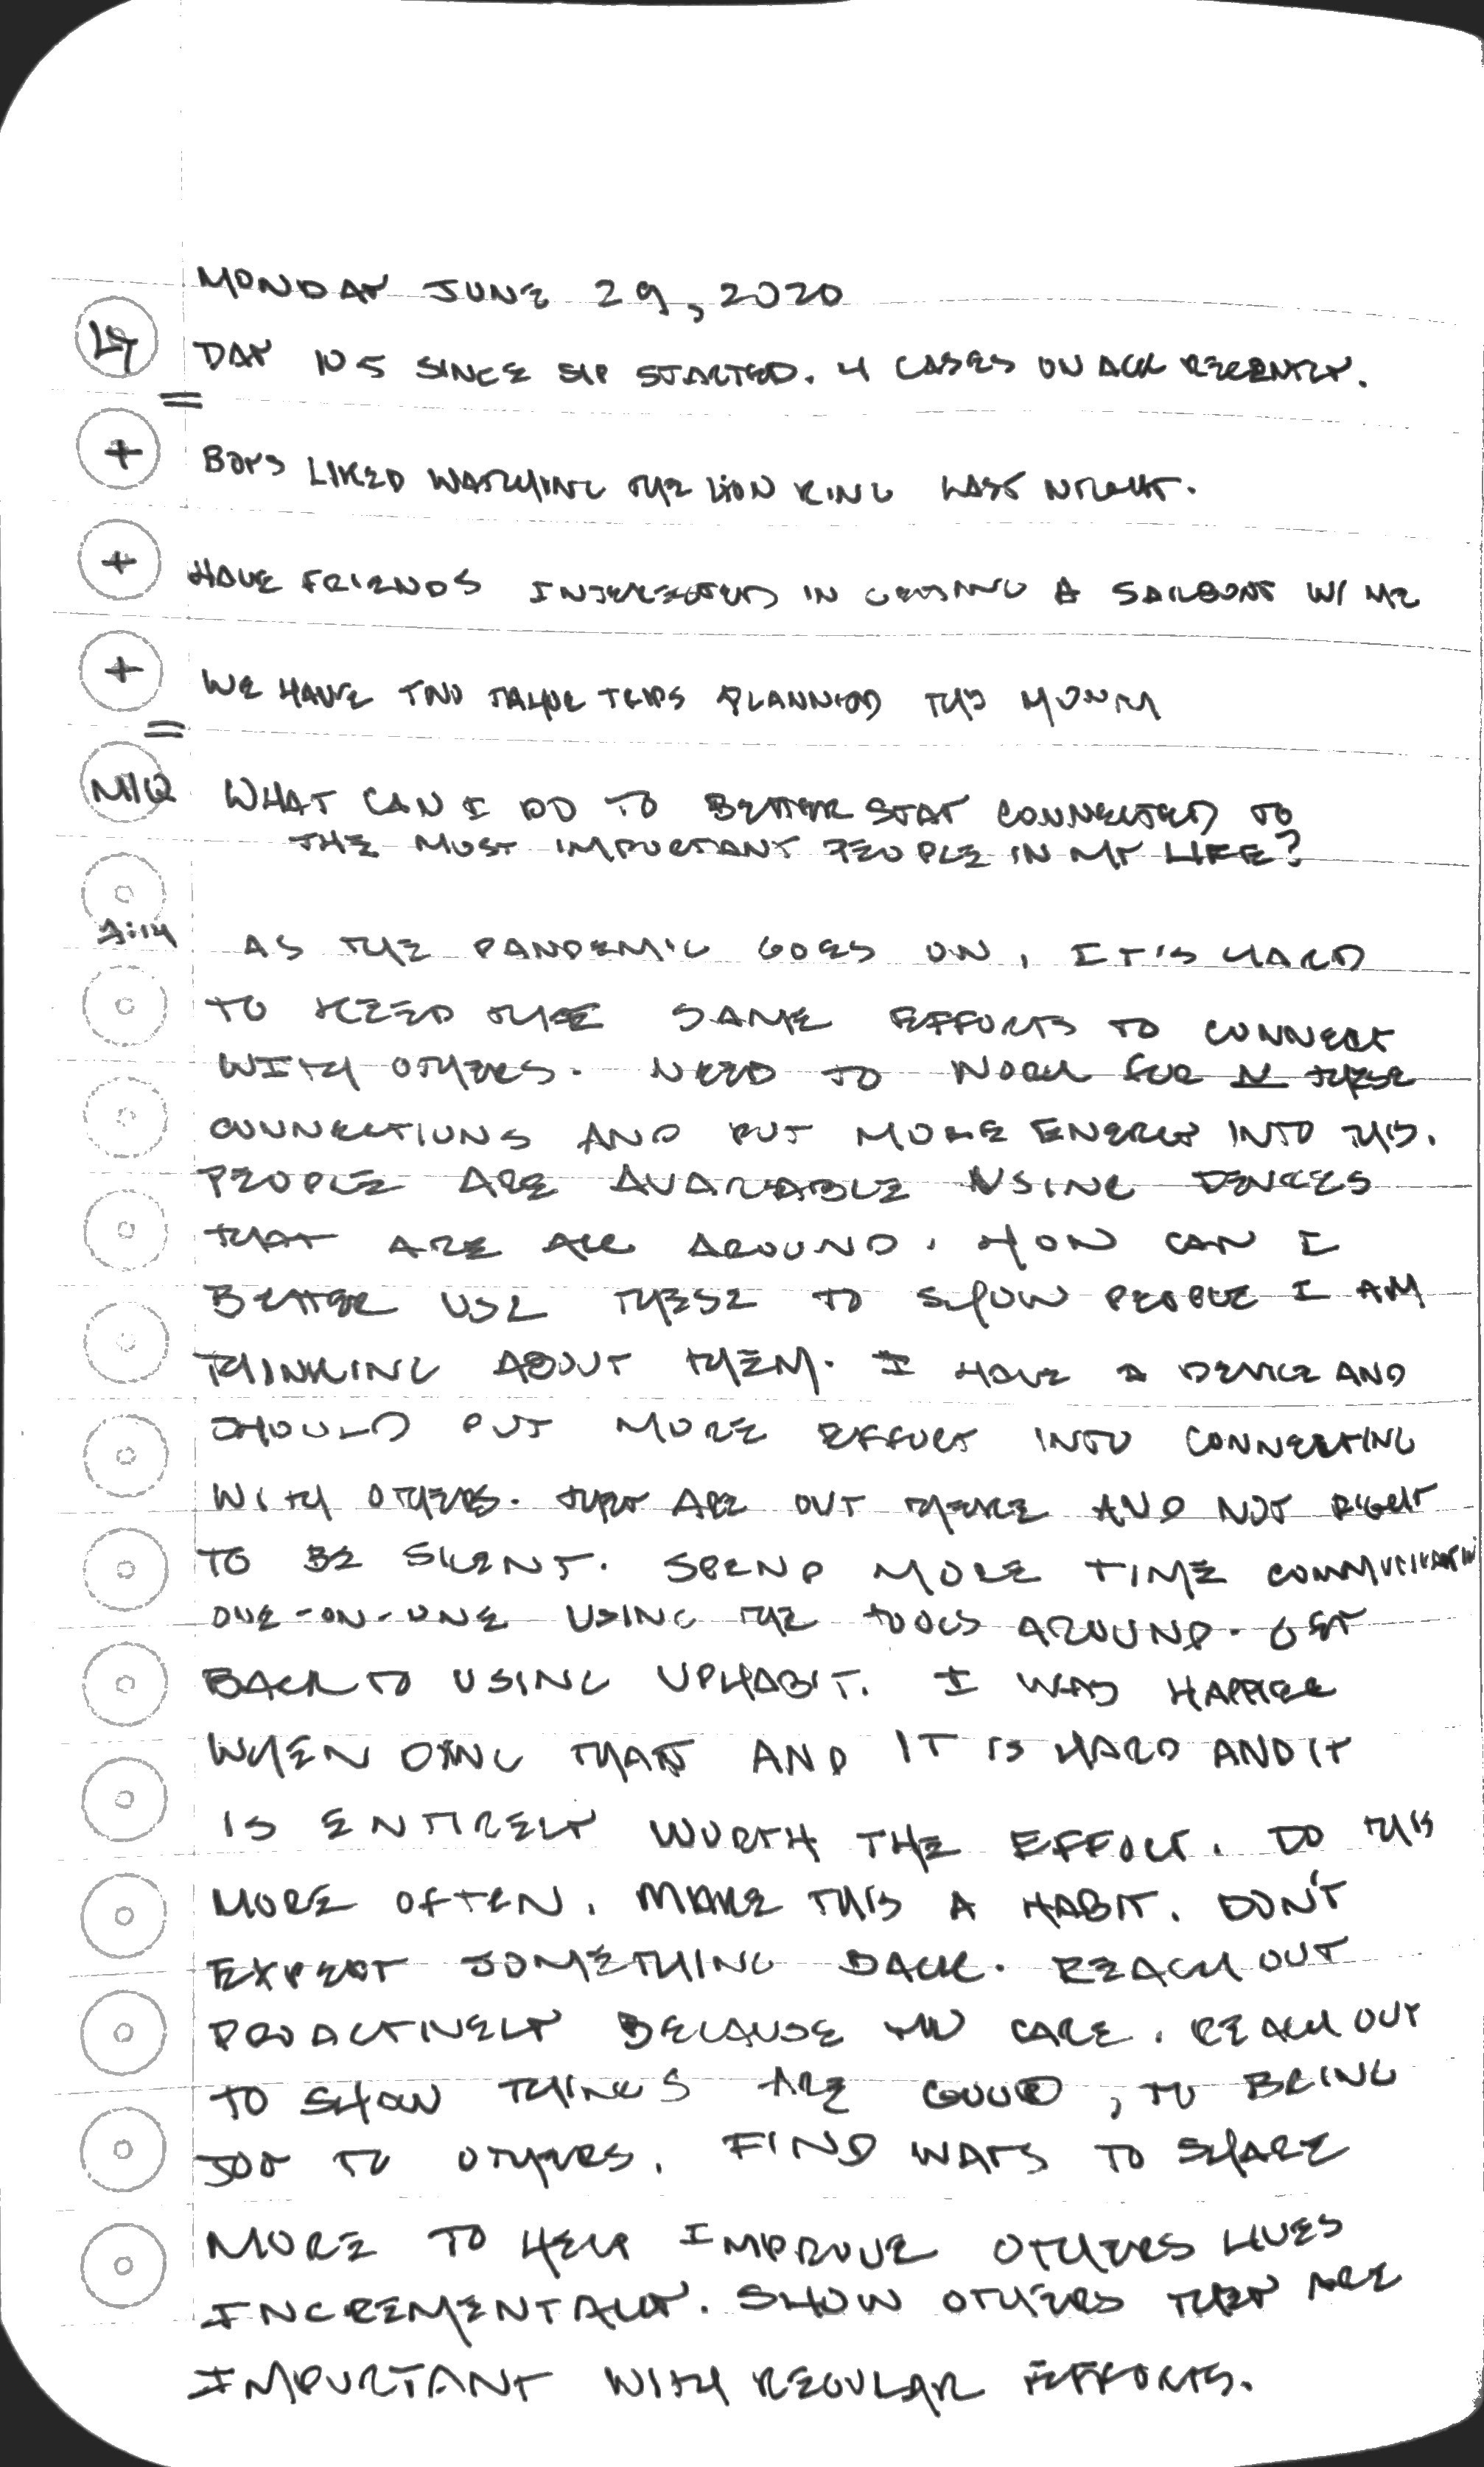 MONDAY JUNE 29, 2020
LT DAY 105 SINCE SIP STARTED. 4 CASES ON ACK RECENTLY.
=
+ BOYS LIKED WATCHING THE LION KING LAST NIGHT.
+ HAVE FRIENDS INTERESTED IN GETTING A SAILBOAT W/ ME
+ WE HAVE TWO TAHOE TRIPS PLANNED THIS MONTH
=
MIQ WHAT CAN I DO TO BETTER STAY CONNECTED TO
THE MOST IMPORTANT PEOPLE IN MY LIFE?
AS THE PANDEMIC GOES ON, IT'S HARD
TO KEEP THE SAME EFFORTS TO CONNECT
WITH OTHERS. NEED TO WORK FOR THESE
CONNECTIONS AND PUT MORE ENERGY INTO THIS.
PEOPLE ARE AVAILABLE USING DEVICES
THAT ARE ALL AROUND. HOW CAN I
BETTER USE THESE TO SHOW PEOPLE I AM
THINKING ABOUT THEM. I HAVE A DEVICE AND
SHOULD PUT MORE EFFORT INTO CONNECTING
WITH OTHERS. THEY ARE OUT THERE AND NOT RIGHT
TO BE SILENT. SPEND MORE TIME
ONE-ON-ONE USING THE TOOLS AROUND. GET
BACK TO USING UPHABIT. I WAS HAPPIER
WHEN DOING THAT AND IT IS HARD AND IT
IS ENTIRELY WORTH THE EFFORT. DO THIS
MORE OFTEN. MAKE THIS A HABIT. DON'T
EXPECT SOMETHING BACK. REACH OUT
PROACTIVELY BECAUSE YOU CARE. REACH OUT
TO SHOW THINGS ARE GOOD, TO BRING
JOY TO OTHERS. FIND WAYS TO SHARE
MORE TO HELP IMPROVE OTHERS LIVES
INCREMENTALLY. SHOW OTHERS THEY ARE
IMPORTANT WITH REGULAR EFFORTS.